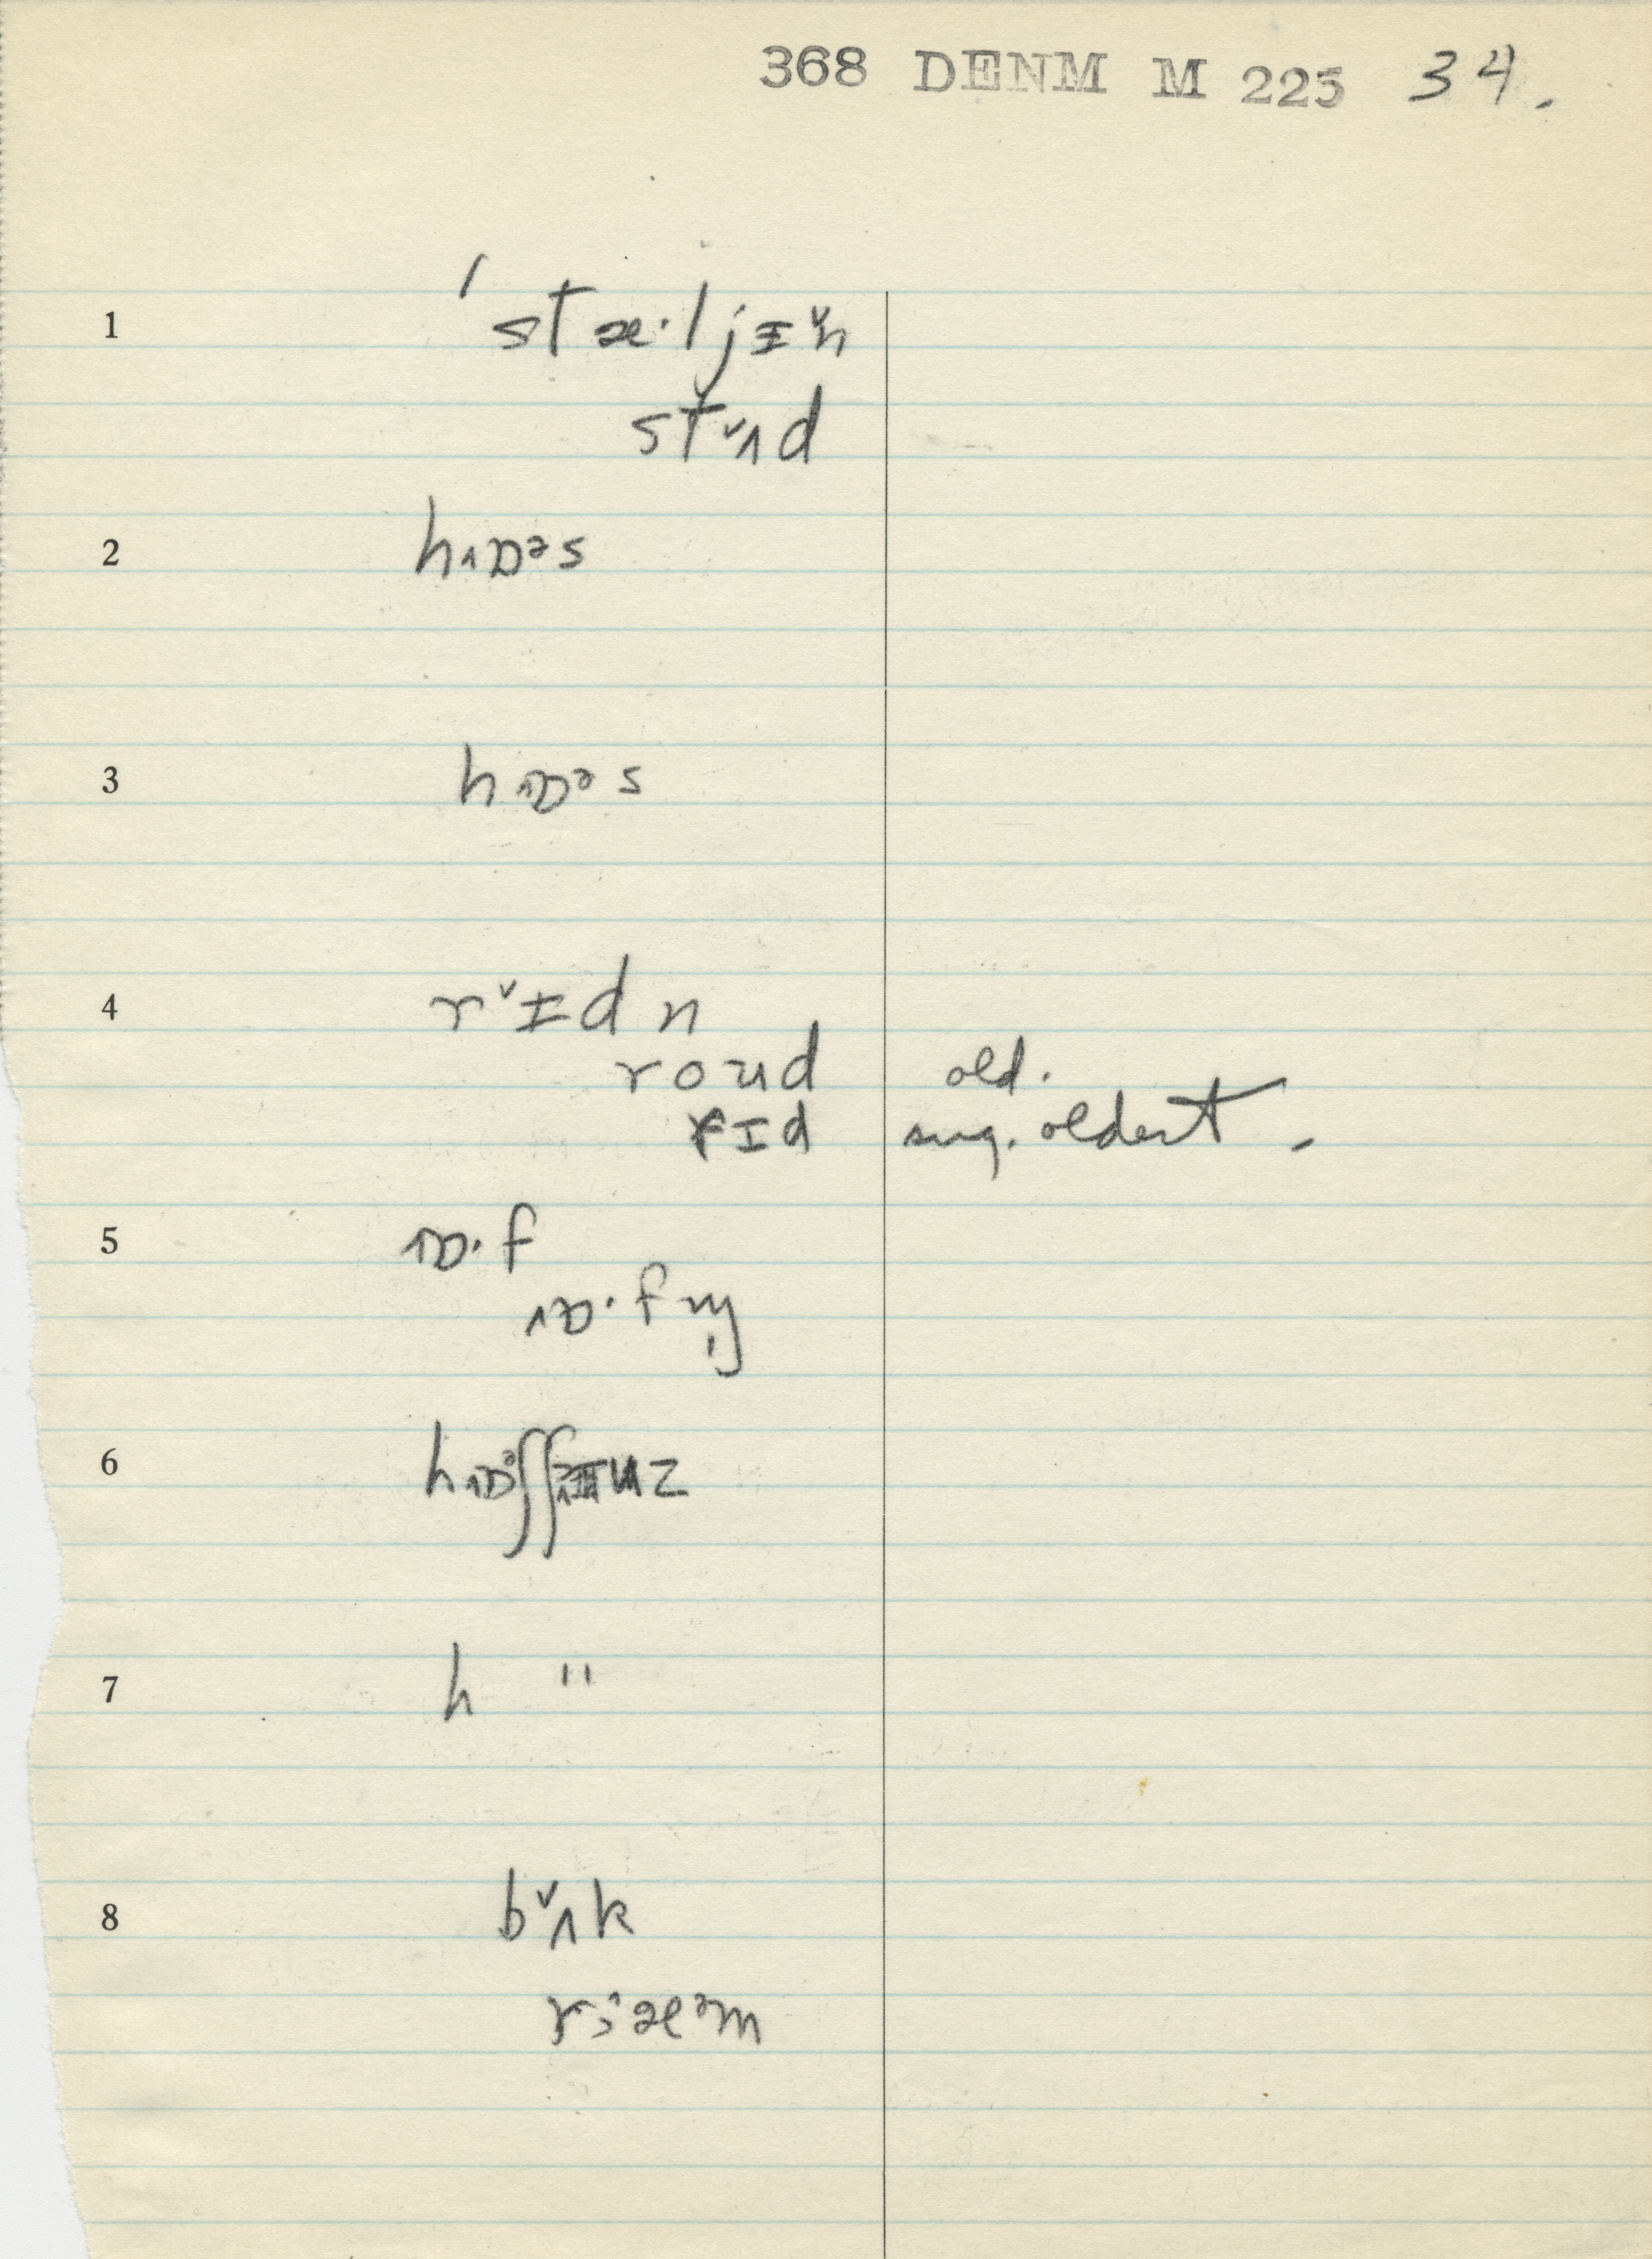 368 DENM M 225 34.
1 ′stæ·ljɪ˅n
st˅ʌd
2 hɒᵊs
3 hɒᵊs
4 r˅ɪdn
roud old.
rɪd sug. oldest.
5 ɒ·f
ɒ·fɪŋ
6
7 h "
8 b˅ʌk